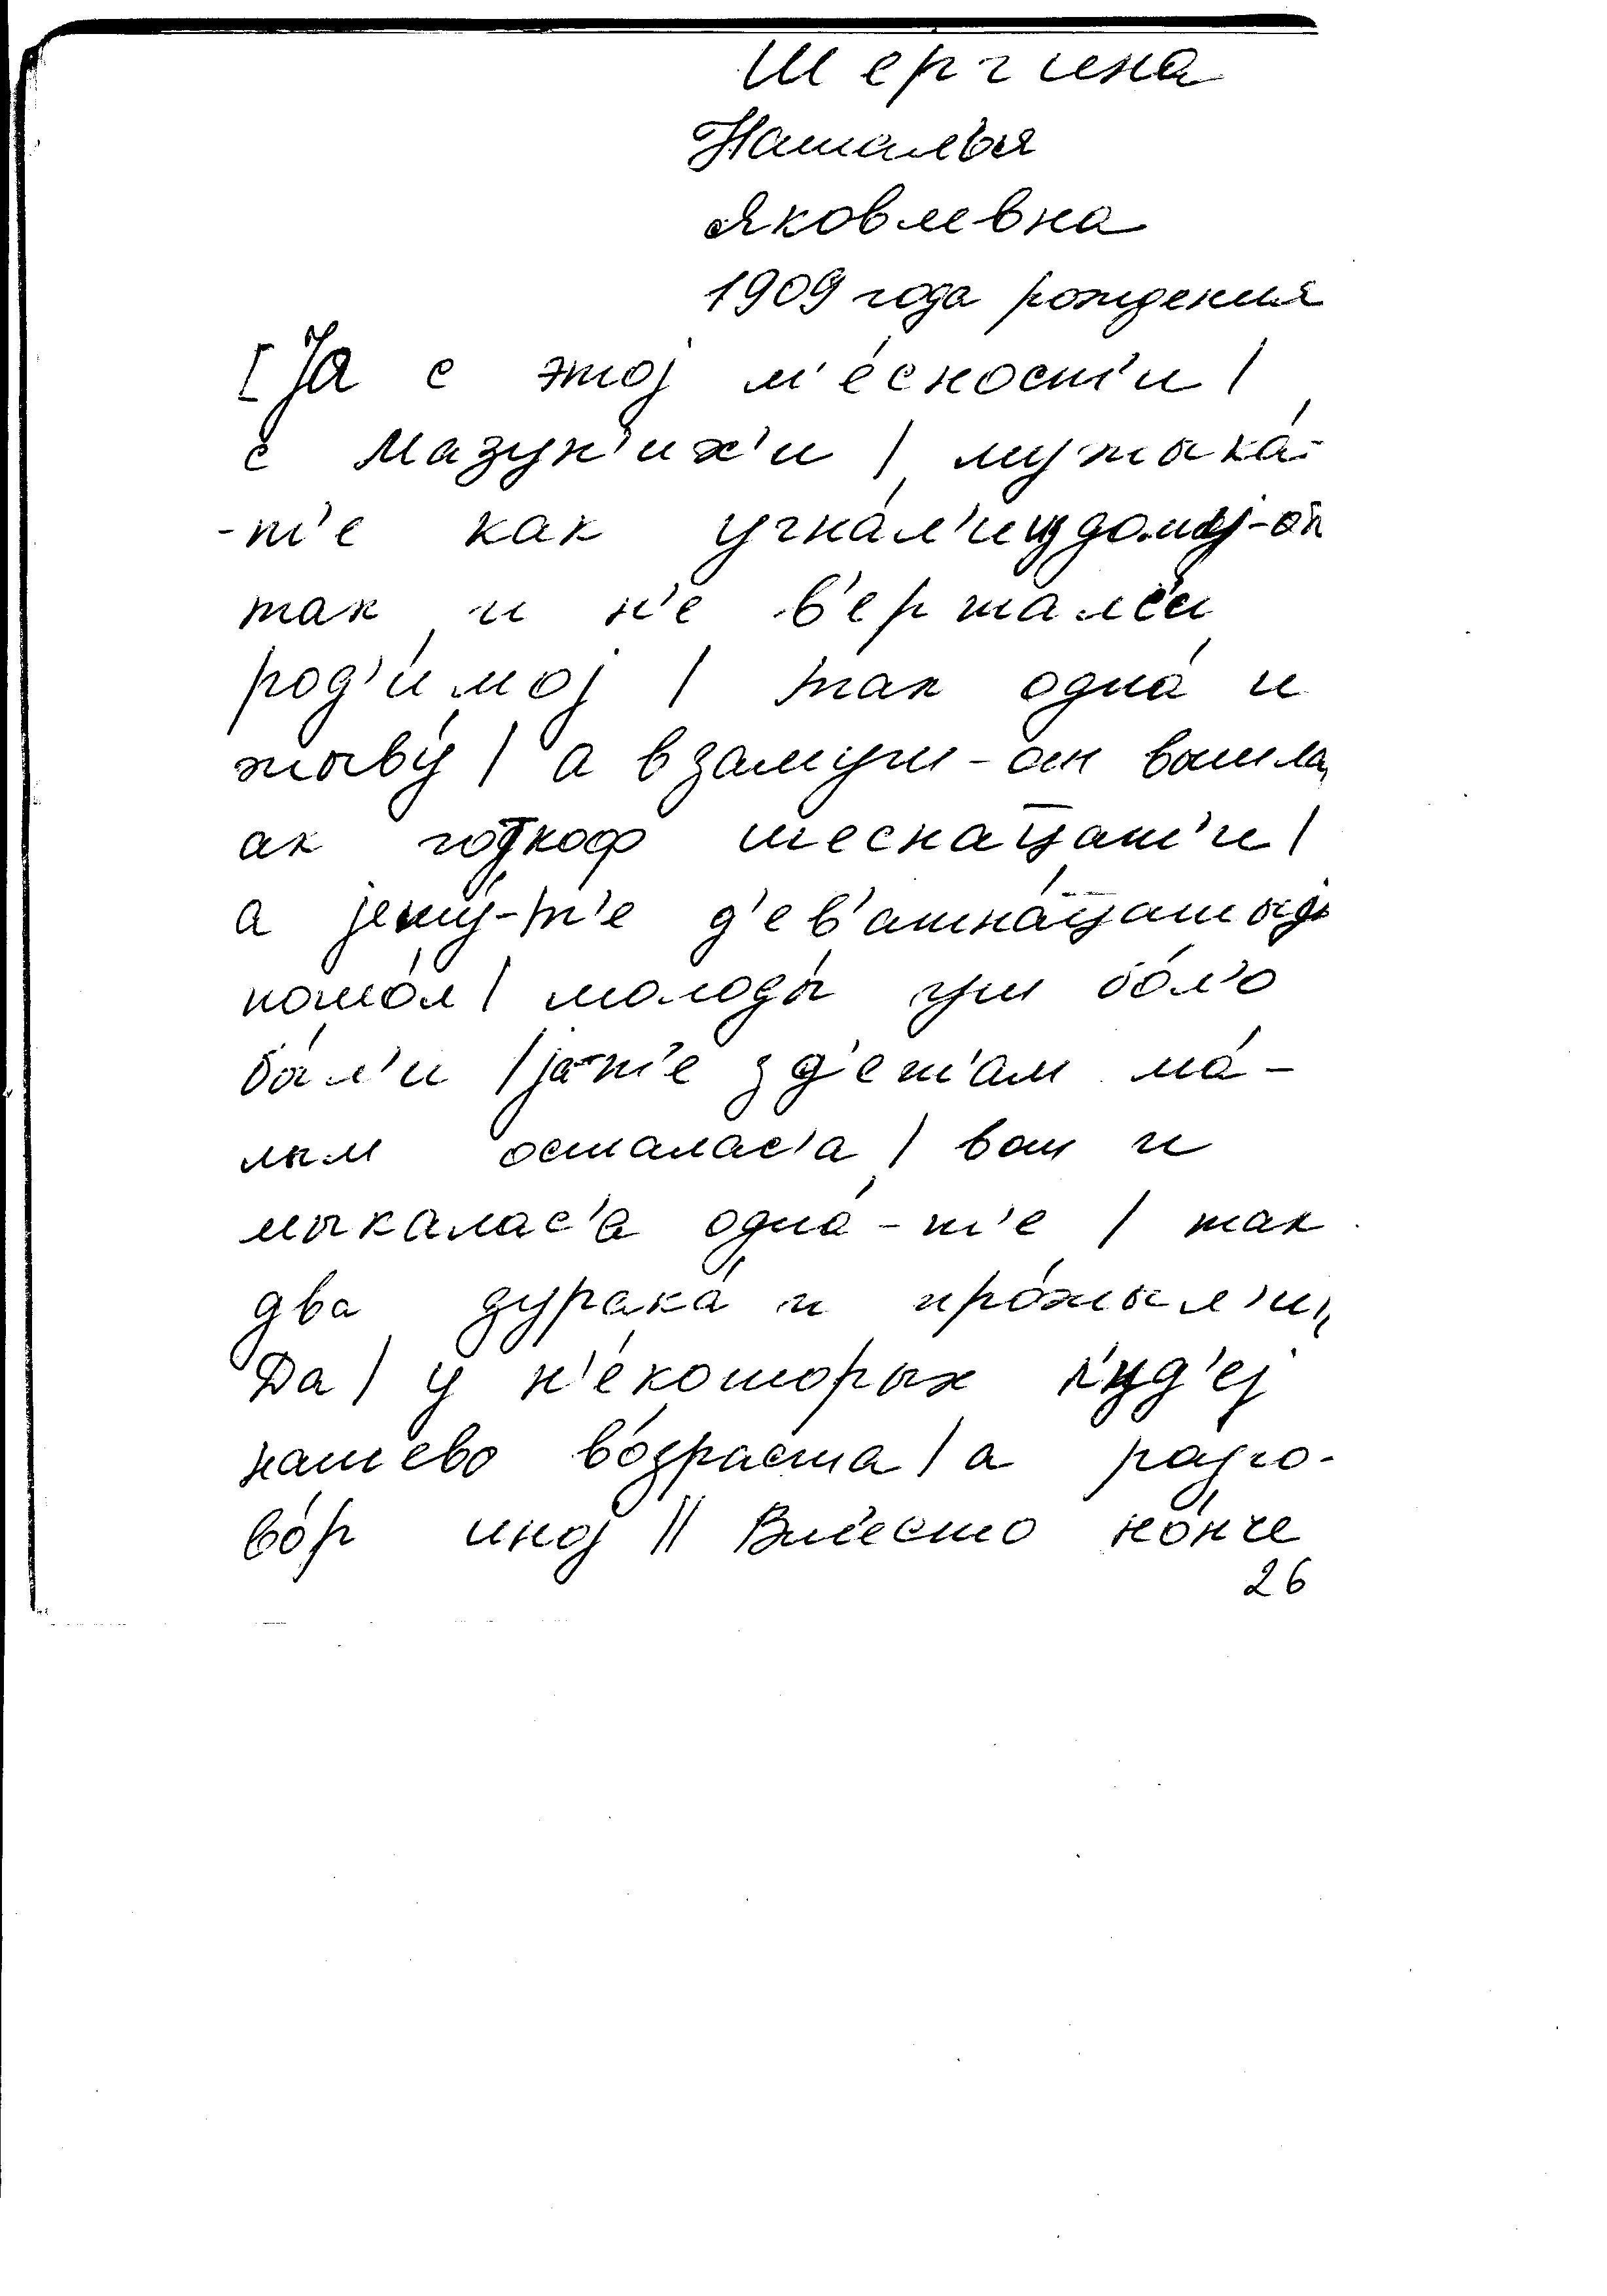 Шергина
Наталья
Яковлевна
1909 года рождения
[Jа с этоj м'е́сност'и |
с Мазун'их'и | мужыка́-
-т'е как угна́л'и из
так и н'е в'ерталс'и
род'и́моj | так одна́ и
жыву́ | а взамуш-он вышла
ак годкоф шеснац̄ат'и |
а jему́-т'е д'ев'атна́ц̄атыj
пошо́л | молоды́ уш бо́л'о
бы́л'и | jа-т'е зд'ет'ам ма́-
лым осталас'а | вот и
мыкалас'а одна́-т'е | так
два дурака́ и про́жыл'и |
Да | у н'е́которых л'уд'еj
нашево во́зраста | а разго-
во́р иноj || Вм'есто но́нче
26